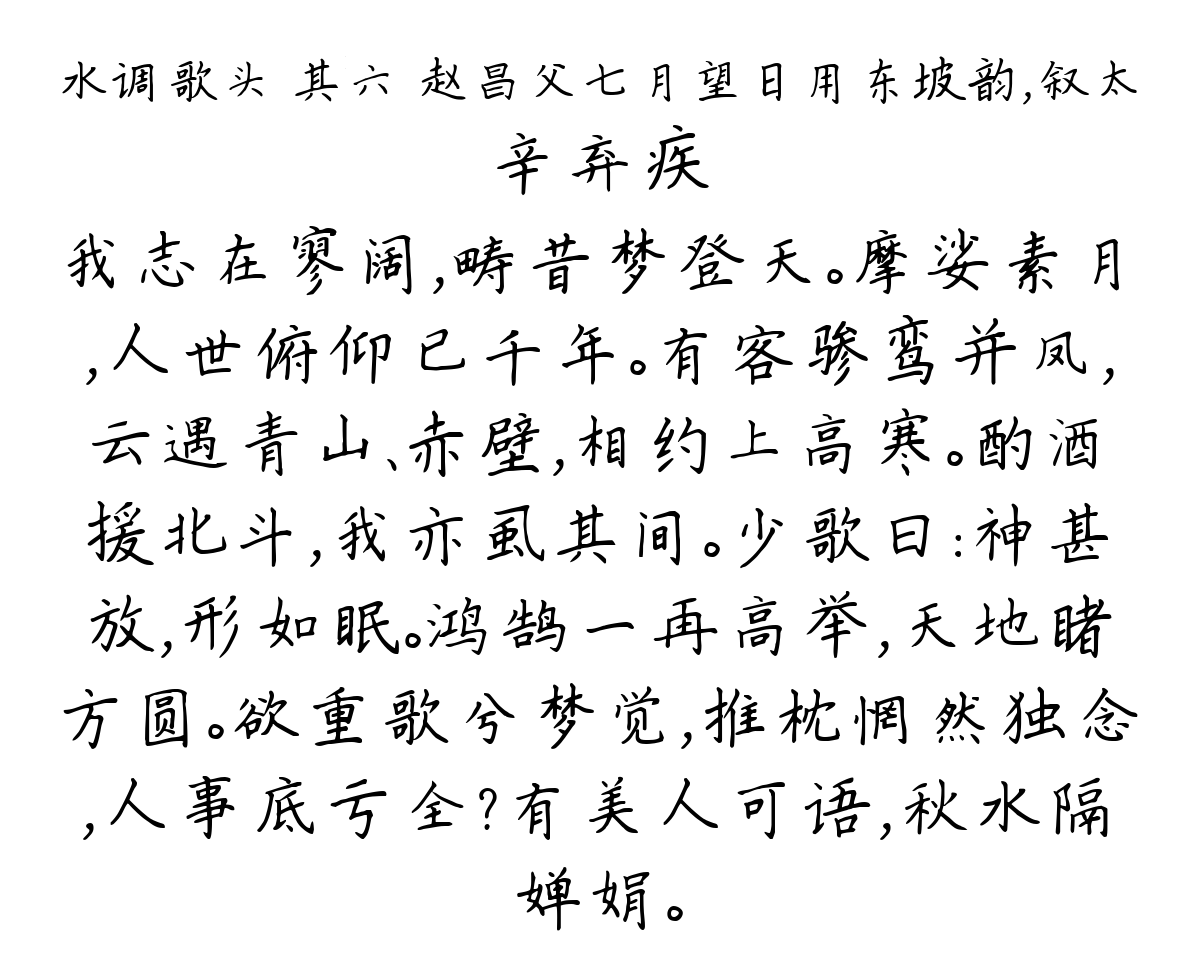 水调歌头 其六 赵昌父七月望日用东坡韵,叙太
辛弃疾
我志在寥阔,畴昔梦登天。摩娑素月
,人世俯仰已千年。有客骖鸾并凤,
云遇青山、赤壁,相约上高寒。酌酒
援北斗,我亦虱其间。少歌曰:神甚
放,形如眠。鸿鹄一再高举,天地睹
方圆。欲重歌兮梦觉,推枕惘然独念
,人事底亏全?有美人可语,秋水隔
婵娟。